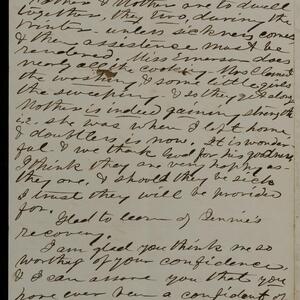 Father & Mother are to dwell
together, they two, during the
winter – unless sickness comes
& the assistence must be
rendered. Miss Emerson does
nearly all the cooking. Mrs. Clement
the washing, & some little girls
the sweeping – & so they get along
Mother is indeed gaining strength
i.e. she was where I left home,
& doubtless is now. It is wonder-
ful & we thank God for his goodness,
I think they are very happy as
they are, & should they be sick
I trust they will be provided
for.
Glad to learn of Jennie's
recovery.
I am glad you think me so
worthy of your confidence,
& I can assure you that you
have ever been a confidant of